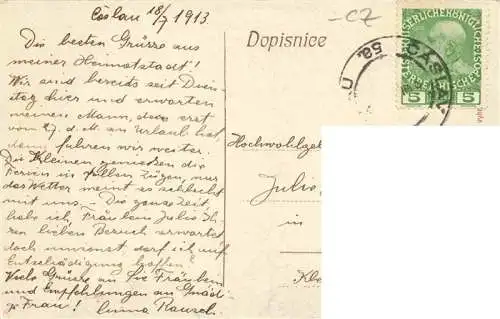 Cöslau 18/7 1913
Die besten Grüsse aus
meiner Heimatstadt!
Wir sind bereits seit Diens-
tag hier und erwarten
meinen Mann, der erst
vom 27. d. M. an Urlaub hat,
dann fahren wir weiter.
Die Kleinen genießen die
Ferien in vollen Zügen, nur
das Wetter meint es schlecht
mit uns. – Die ganze Zeit
habe ich, Fräulein Julie Ih-
ren lieben Besuch erwartet
doch umsonst darf ich auf
Entschädigung hoffen?
Viele Grüsse an Sie Fräulein
und Empfehlungen an Gnädi-
ge Frau! Anna Rausch
Dopisnice
– CZ
KAISERLICHE KÖNIGLICHE
ÖSTERREICHISCHE
5 5
ČÁSLAV
5a.
Hochwohlge
Julie
in